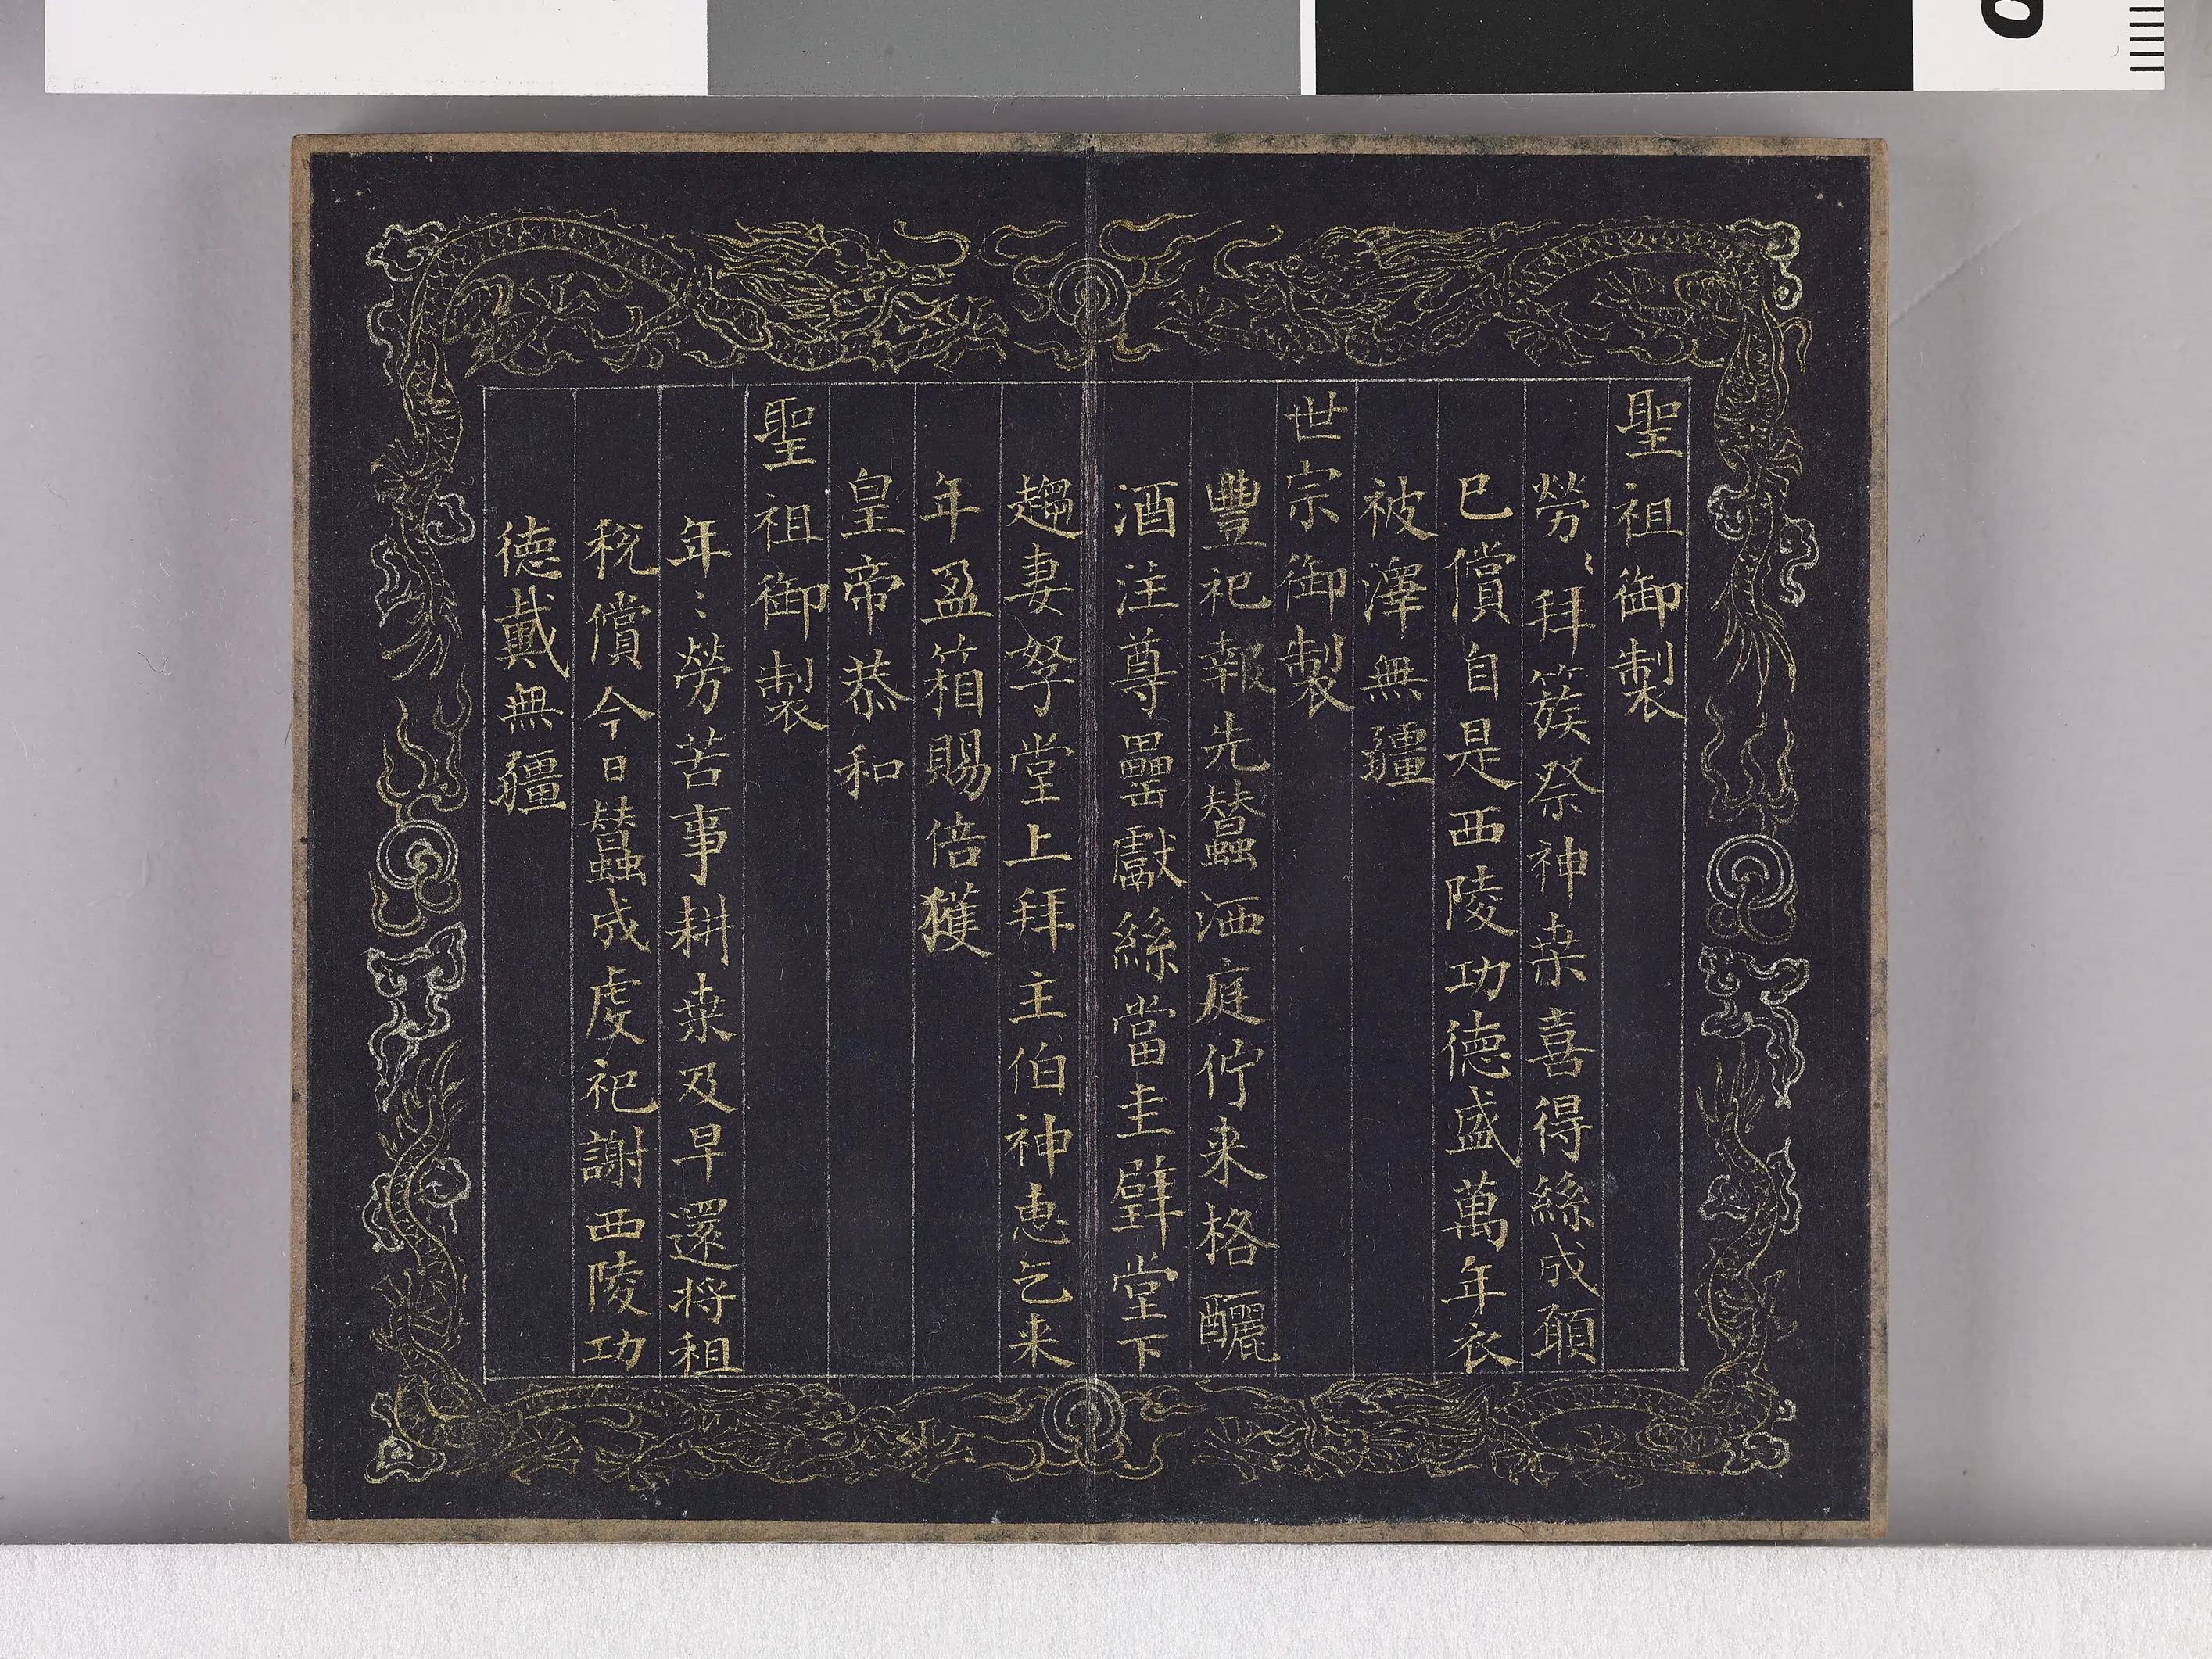 聖祖御製
勞〻拜簇祭神桒喜得絲成願
已償自是西陵功德盛萬年衣
被澤無疆
世宗御製
豐祀報先蠶洒庭佇来格釃
酒注尊罍獻絲當圭璧堂下
趨妻孥堂上拜主伯神惠乞来
年盈箱賜倍獲
皇帝恭和
聖祖御製
年〻勞苦事耕桒及早還将租
稅償今日蠶成虔祀謝西陵功
德戴無疆